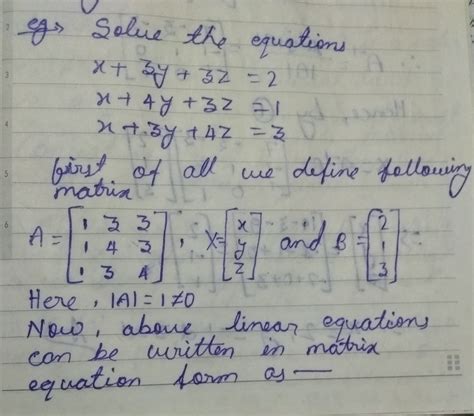 eg→ Solve the equations
x + 3y + 3z = 2
x + 4y + 3z = 1
x + 3y + 4z = 3
first of all we define following
matrix
A = [1 3 3; 1 4 3; 1 3 4], X = [x; y; z] and B = [2; 1; 3]
Here, |A| = 1 ≠ 0
Now, above linear equations
can be written in matrix
equation form as —